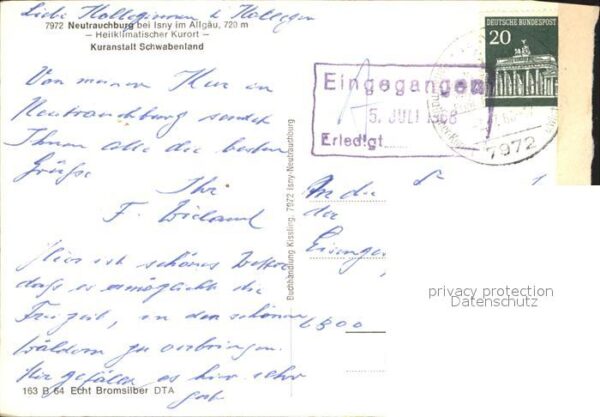 Liebe Kolleginnen & Kollegen
7972 Neutrauchburg bei Isny im Allgäu, 720 m
— Heilklimatischer Kurort —
Kuranstalt Schwabenland
Von meiner Kur in
Neutrauchburg sendet
Ihnen alle die besten
Grüße
Ihr
F. Wieland
Hier ist schönes Wetter
daß es ermöglicht die
Freizeit, in den schönen
Wäldern zu verbringen.
Mir gefällt es hier sehr
gut
163 B 64 Echt Bromsilber DTA
Buchhandlung Kissling, 7972 Isny-Neutrauchburg
DEUTSCHE BUNDESPOST
20
7972
Eingegangen
5. JULI 1968
Erledigt
An die
der
6800
privacy protection
Datenschutz